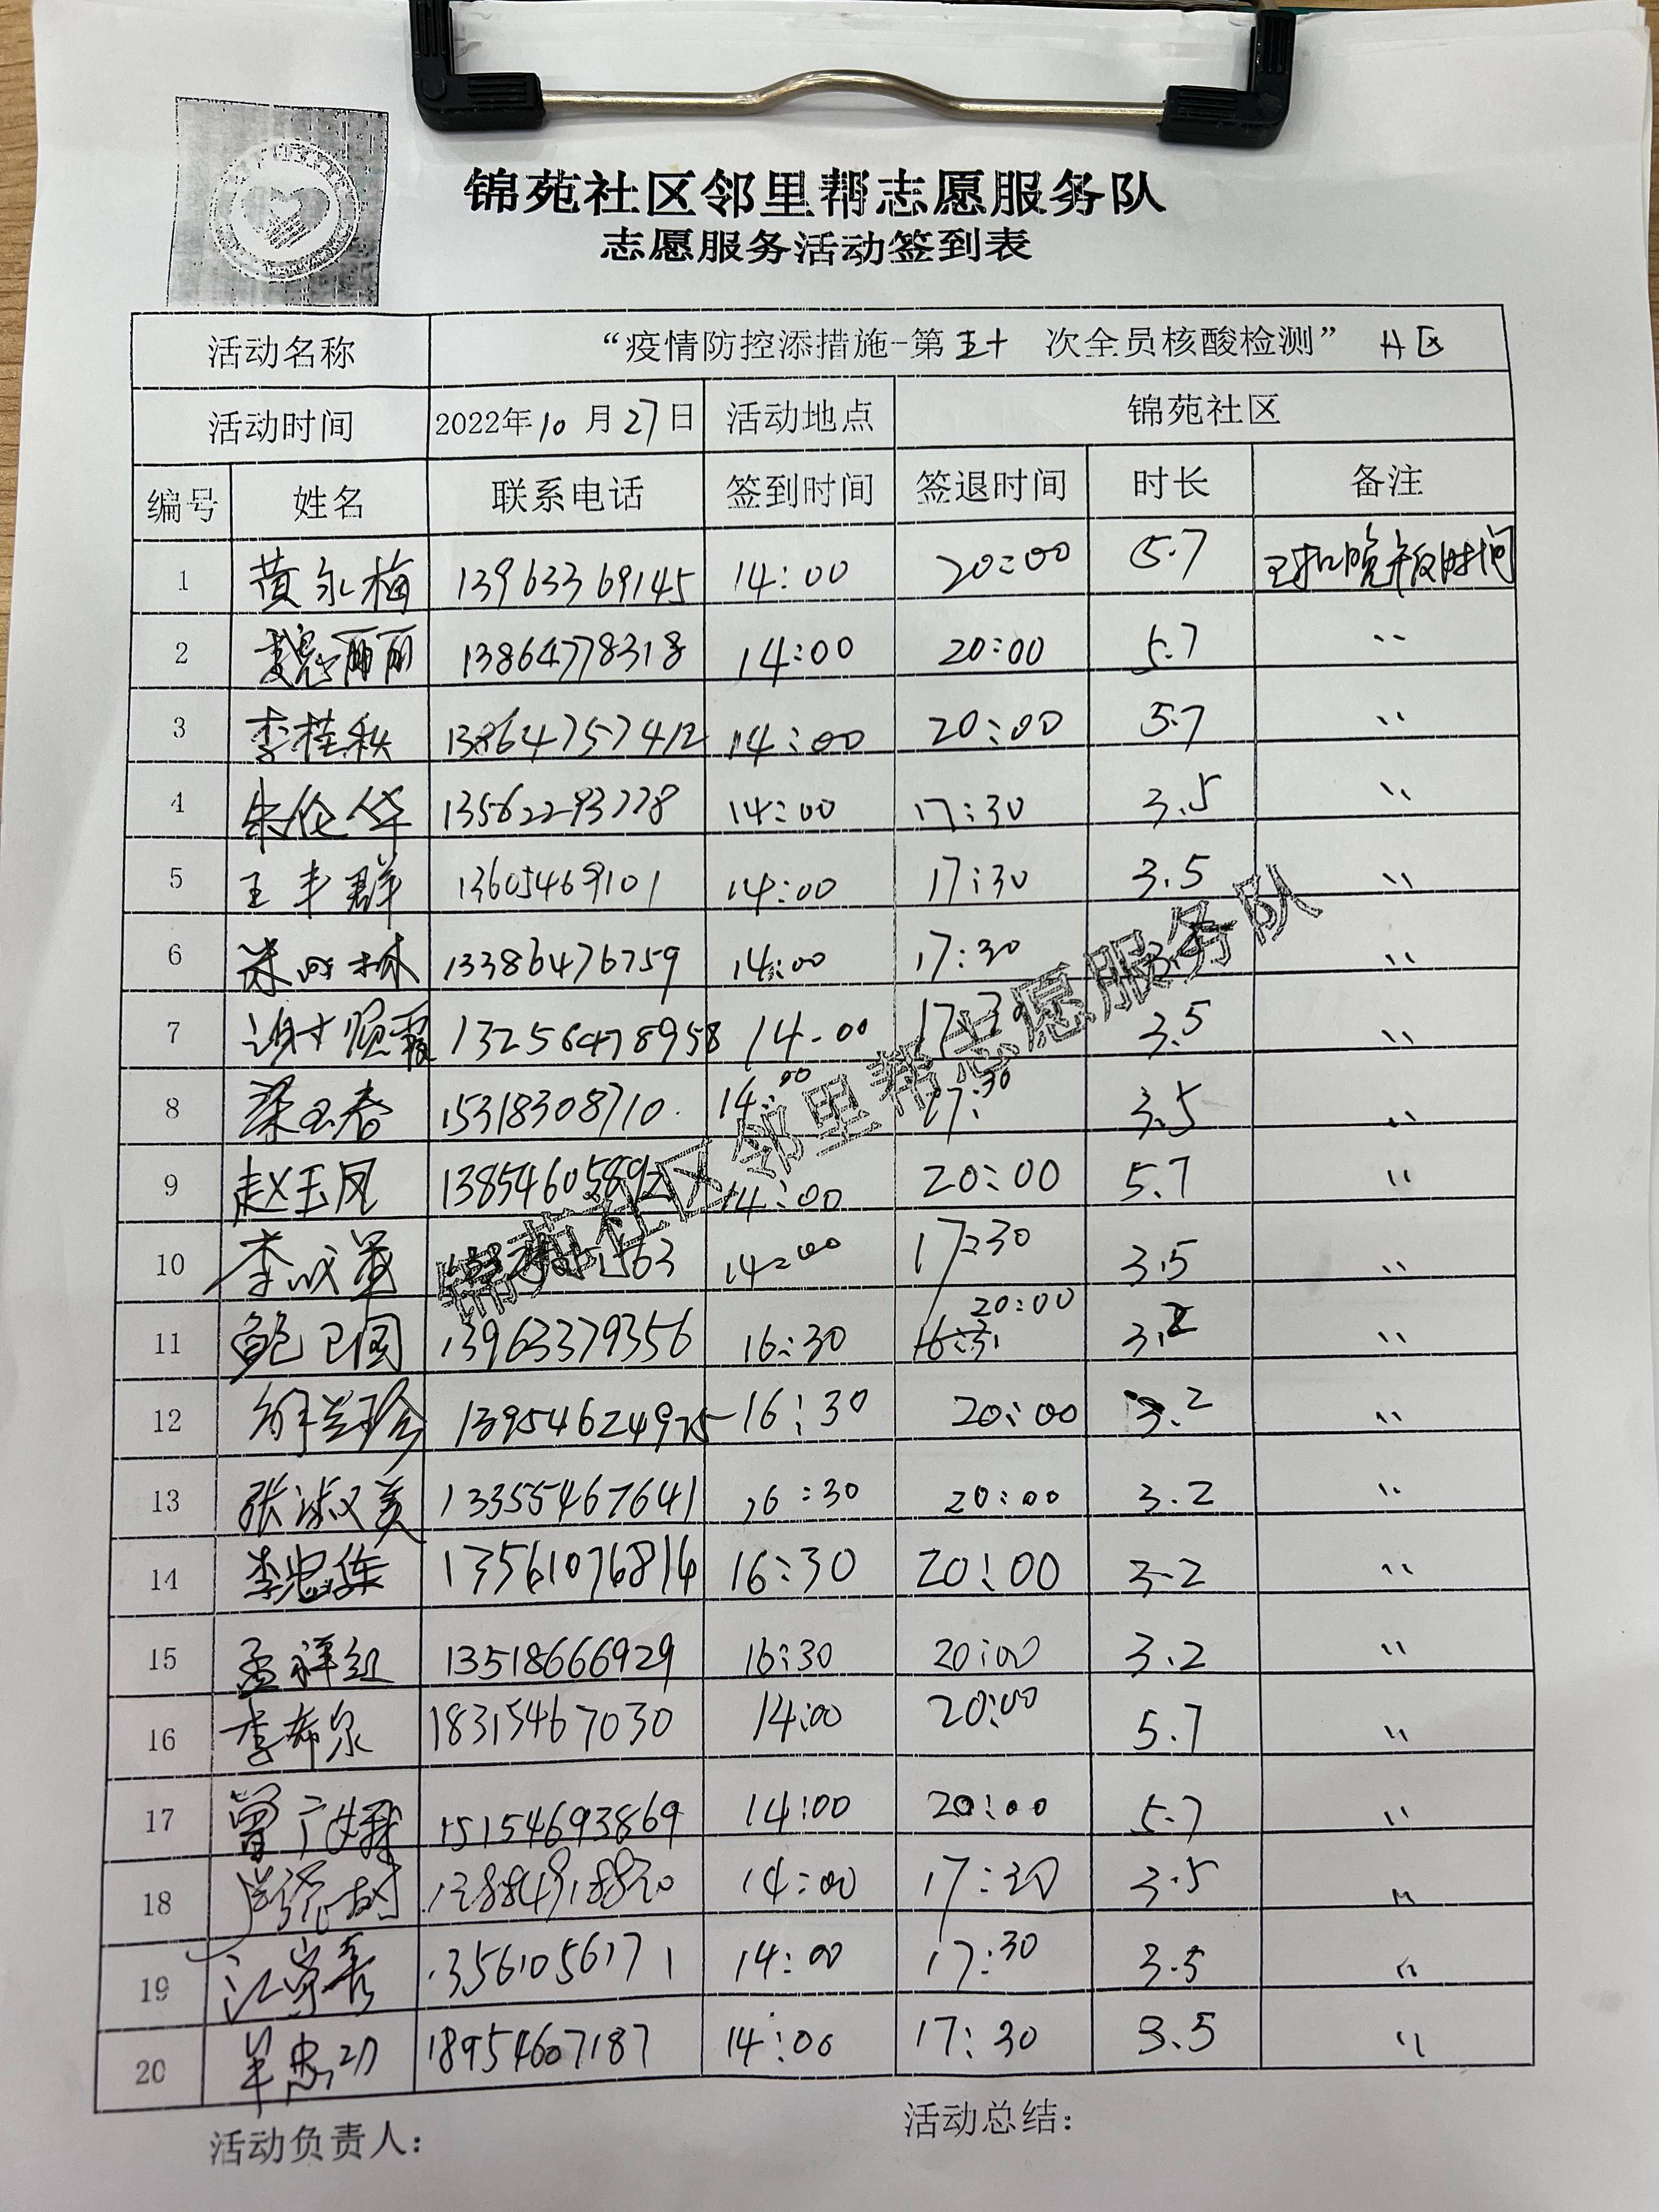 锦苑社区邻里帮志愿服务队
志愿服务活动签到表
活动名称 “疫情防控添措施-第五十 次全员核酸检测” H区
活动时间 2022年10月27日 活动地点 锦苑社区
编号 姓名 联系电话 签到时间 签退时间 时长 备注
1 黄永梅 13963369145 14:00 20:00 5.7 已扣晚午饭时间
2 魏丽丽 13864778318 14:00 20:00 5.7 〃
3 李桂秋 13864757412 14:00 20:00 5.7 〃
4 朱伦华 13562293778 14:00 17:30 3.5 〃
5 王丰群 13605469101 14:00 17:30 3.5 〃
6 13386476759 14:00 17:30 〃
7 谢顺霞 13256478958 14-00 17:30 3.5 〃
8 梁玉春 15318308710 14:00 17:30 3.5 〃
9 赵玉凤 14:00 20:00 5.7 〃
10 李成英 14:00 17:30 3.5 〃
11 鲍卫国 13963379356 16:30 20:00 3.2 〃
12 徐兰珍 13954624975 16:30 20:00 3.2 〃
13 张淑美 13355467641 16:30 20:00 3.2 〃
14 李忠集 13561076814 16:30 20:00 3.2 〃
15 孟祥红 13518666929 16:30 20:00 3.2 〃
16 李希泉 18315467030 14:00 20:00 5.7 〃
17 曾广娥 15154693869 14:00 20:00 5.7 〃
18 14:00 17:30 3.5 〃
19 江崇善 13561056171 14:00 17:30 3.5 〃
20 18954607187 14:00 17:30 3.5 〃
锦苑社区邻里帮志愿服务队
活动负责人： 活动总结：